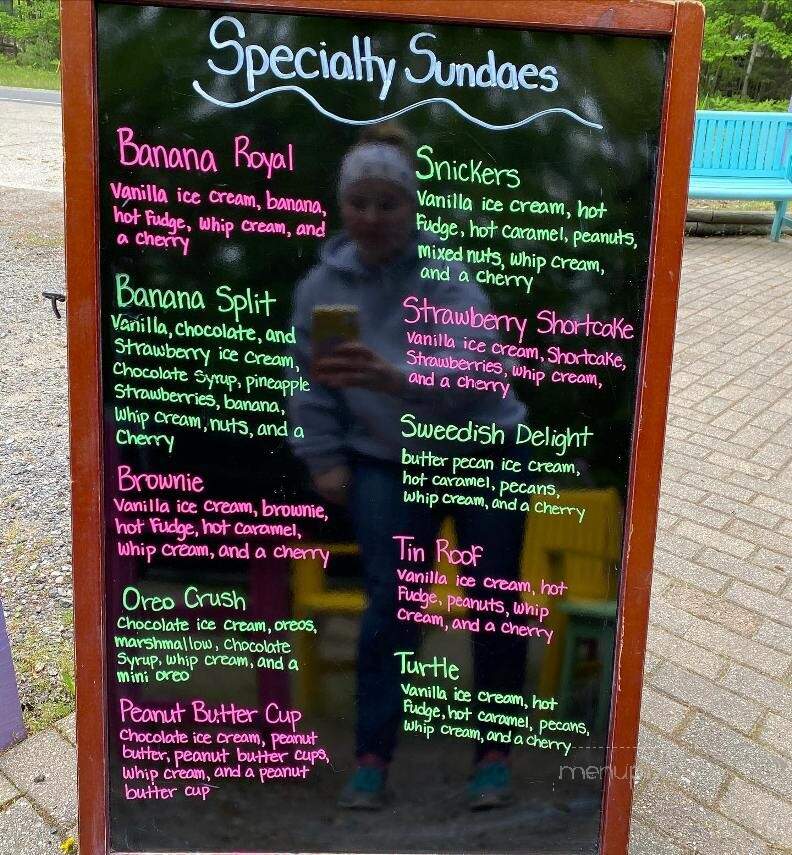 Specialty Sundaes
Banana Royal
Vanilla ice cream, banana,
hot fudge, whip cream, and
a cherry
Banana Split
Vanilla, chocolate, and
Strawberry ice cream,
Chocolate syrup, pineapple
Strawberries, banana,
whip cream, nuts, and a
Cherry
Brownie
Vanilla ice cream, brownie,
hot fudge, hot caramel,
whip cream, and a cherry
Oreo Crush
Chocolate ice cream, oreos,
marshmallow, chocolate
Syrup, whip cream, and a
mini oreo
Peanut Butter Cup
Chocolate ice cream, peanut
butter, peanut butter cups,
whip cream, and a peanut
butter cup
Snickers
Vanilla ice cream, hot
Fudge, hot caramel, peanuts,
mixed nuts, whip cream,
and a cherry
Strawberry Shortcake
Vanilla ice cream, Shortcake,
Strawberries, whip cream,
and a cherry
Sweedish Delight
butter pecan ice cream,
hot caramel, pecans,
whip cream, and a cherry
Tin Roof
Vanilla ice cream, hot
Fudge, peanuts, whip
cream, and a cherry
Turtle
Vanilla ice cream, hot
Fudge, hot caramel, pecans,
whip cream, and a cherry